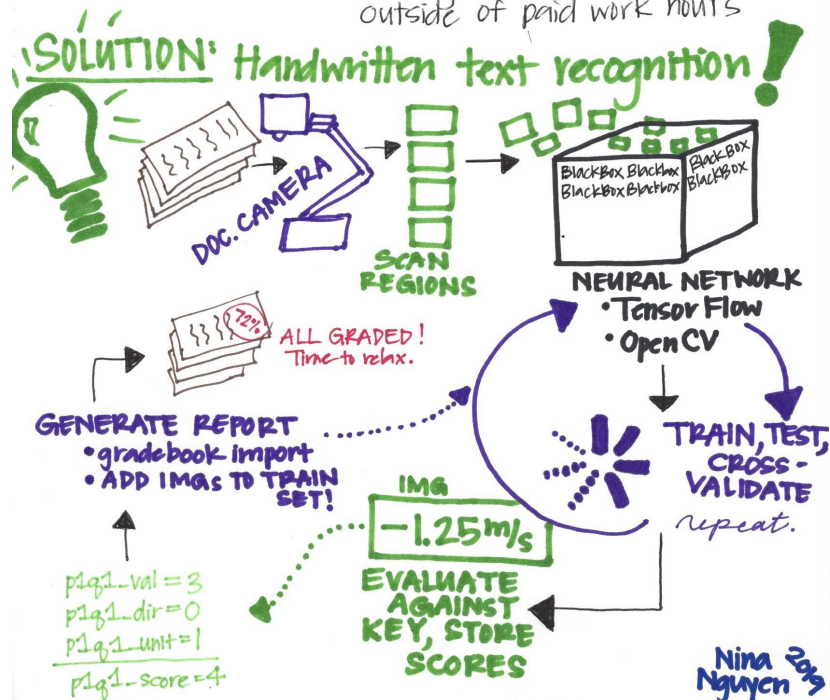 outside of paid work hours
SOLUTION: Handwritten text recognition!
DOC. CAMERA
SCAN
REGIONS
BlackBox, Blackbox
BlackBox Blackbox
BlackBox
BlackBox
NEURAL NETWORK
• Tensor Flow
• Open CV
72%
ALL GRADED!
Time to relax.
GENERATE REPORT
• gradebook import
• ADD IMGs TO TRAIN
SET!
TRAIN, TEST,
CROSS-
VALIDATE
repeat.
IMG
-1.25 m/s
EVALUATE
AGAINST
KEY, STORE
SCORES
p1q1_val = 3
p1q1_dir = 0
p1q1_unit = 1
p1q1_score = 4
Nina
Nguyen
2019